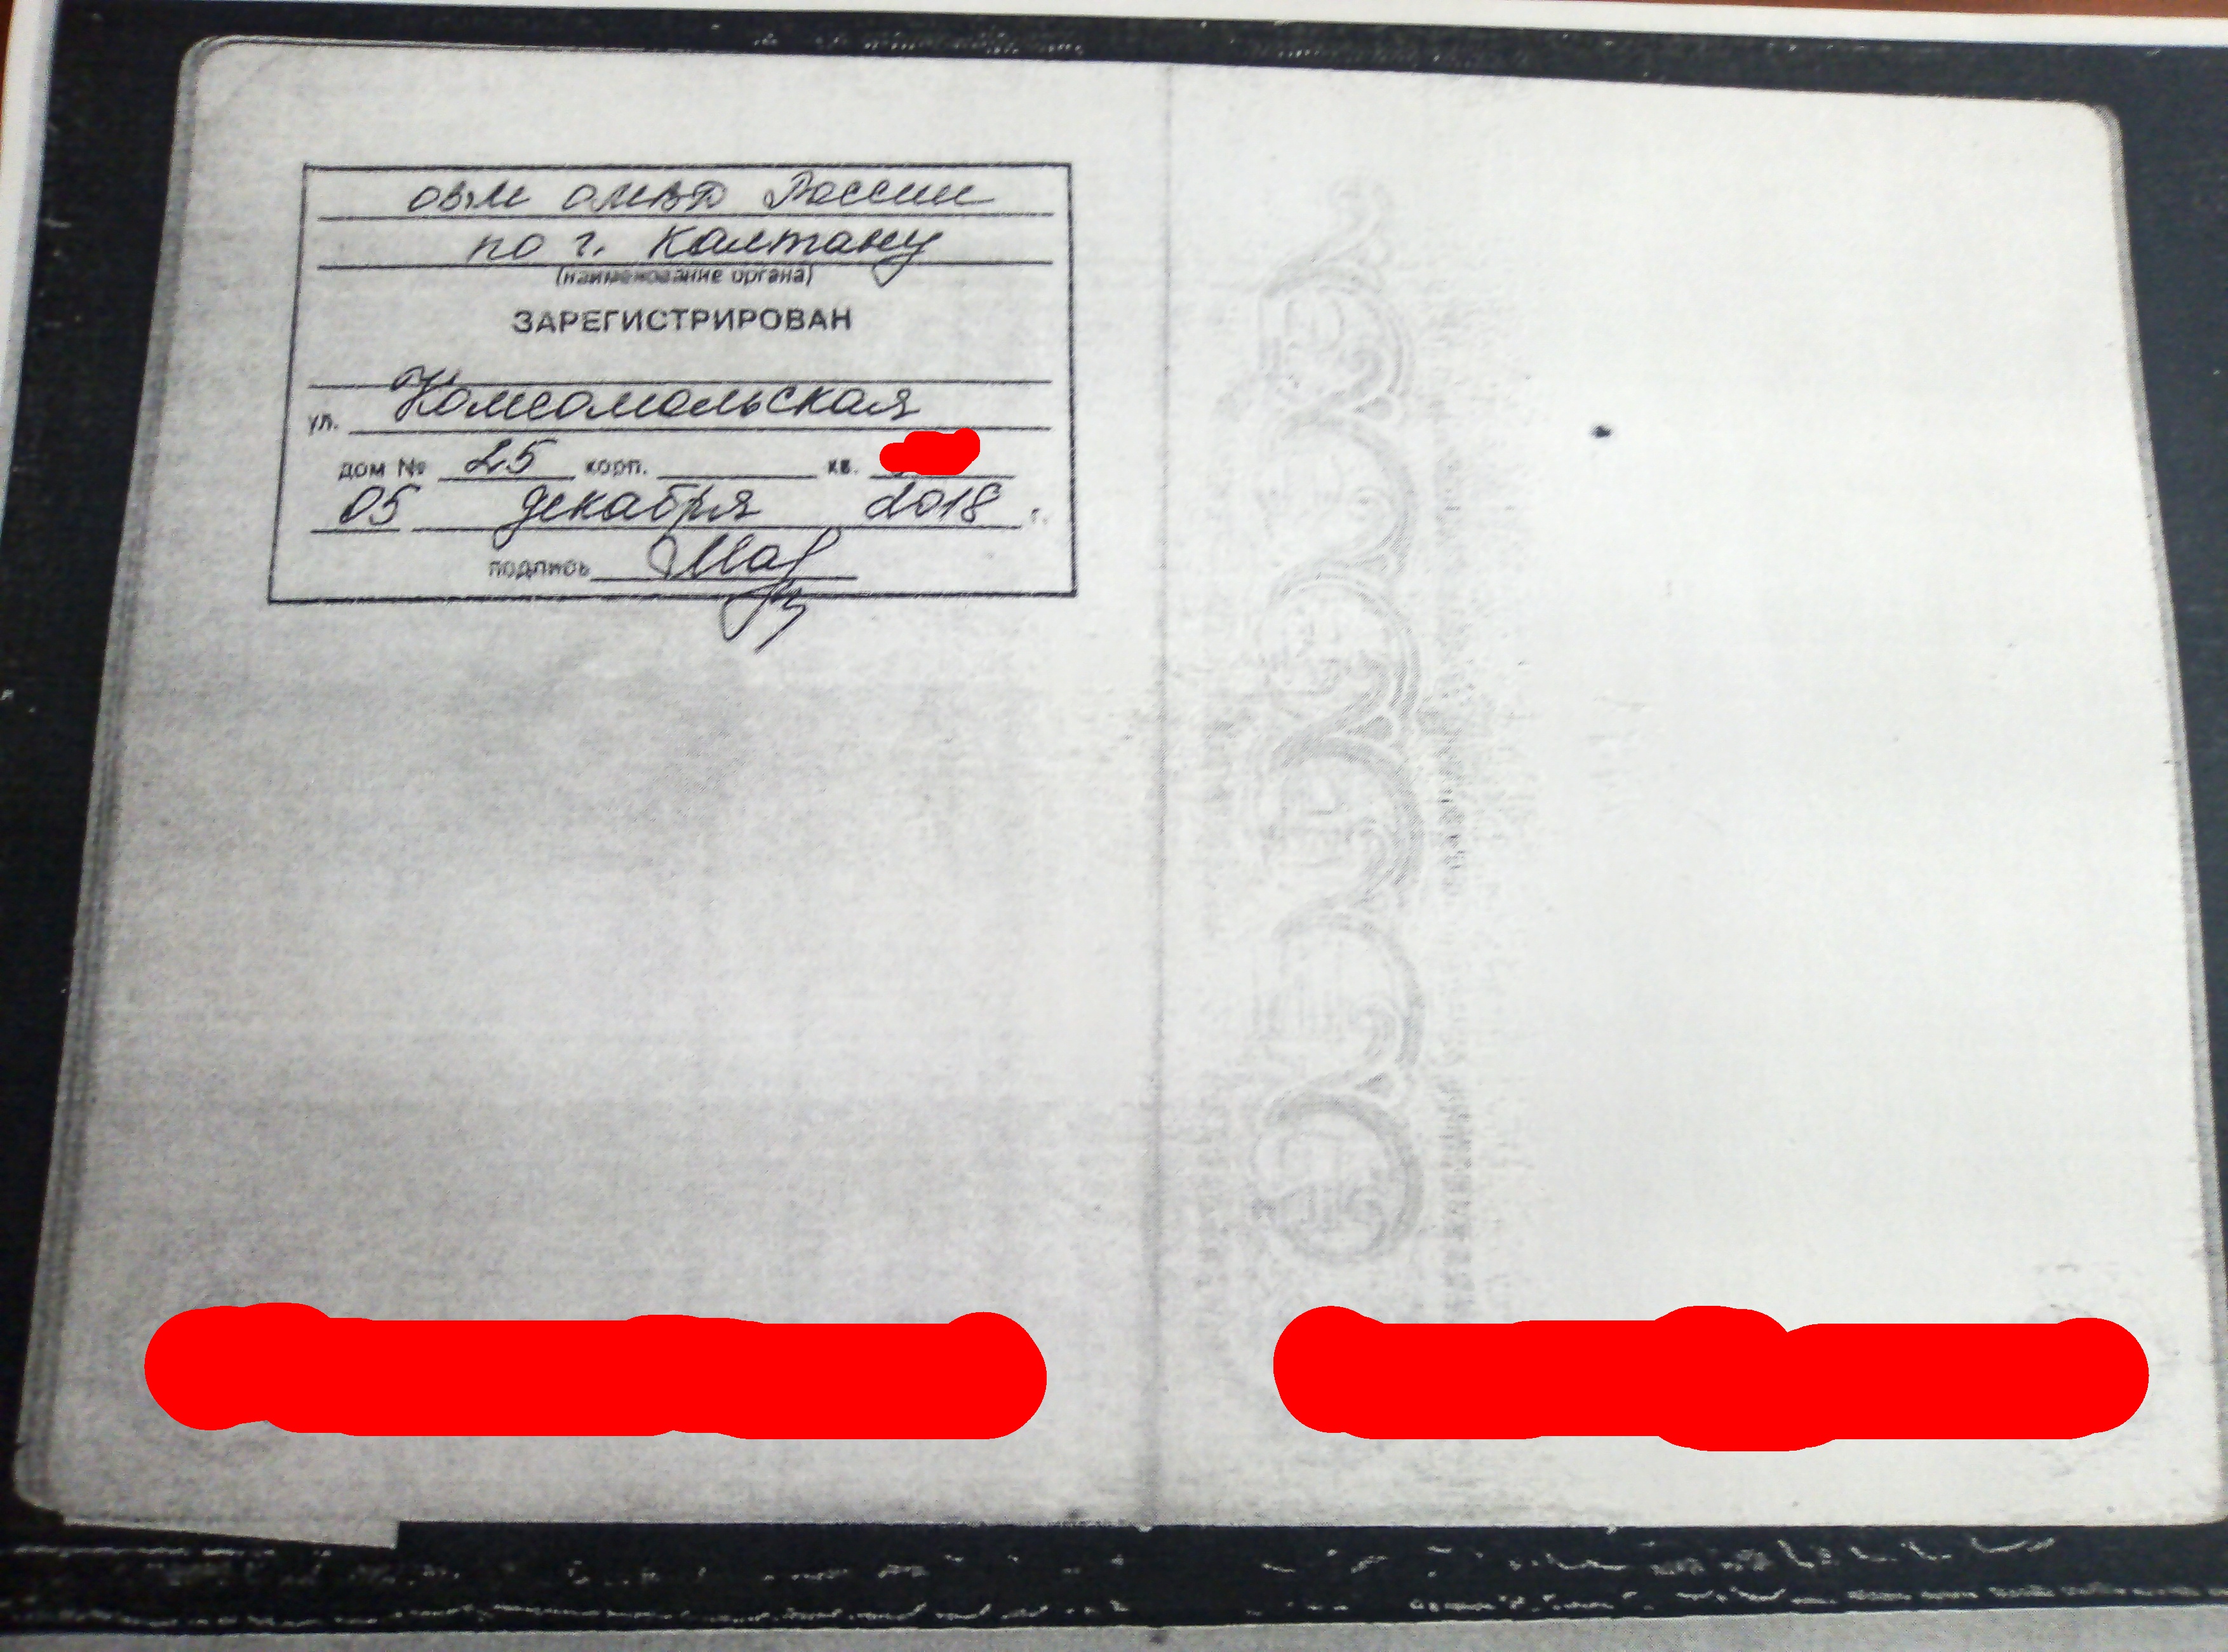 ОВМ ОМВД России
по г. Калтану
(наименование органа)
ЗАРЕГИСТРИРОВАН
ул. Комсомольская
дом № 25 корп. кв.
05 декабря 2018 г.
подпись